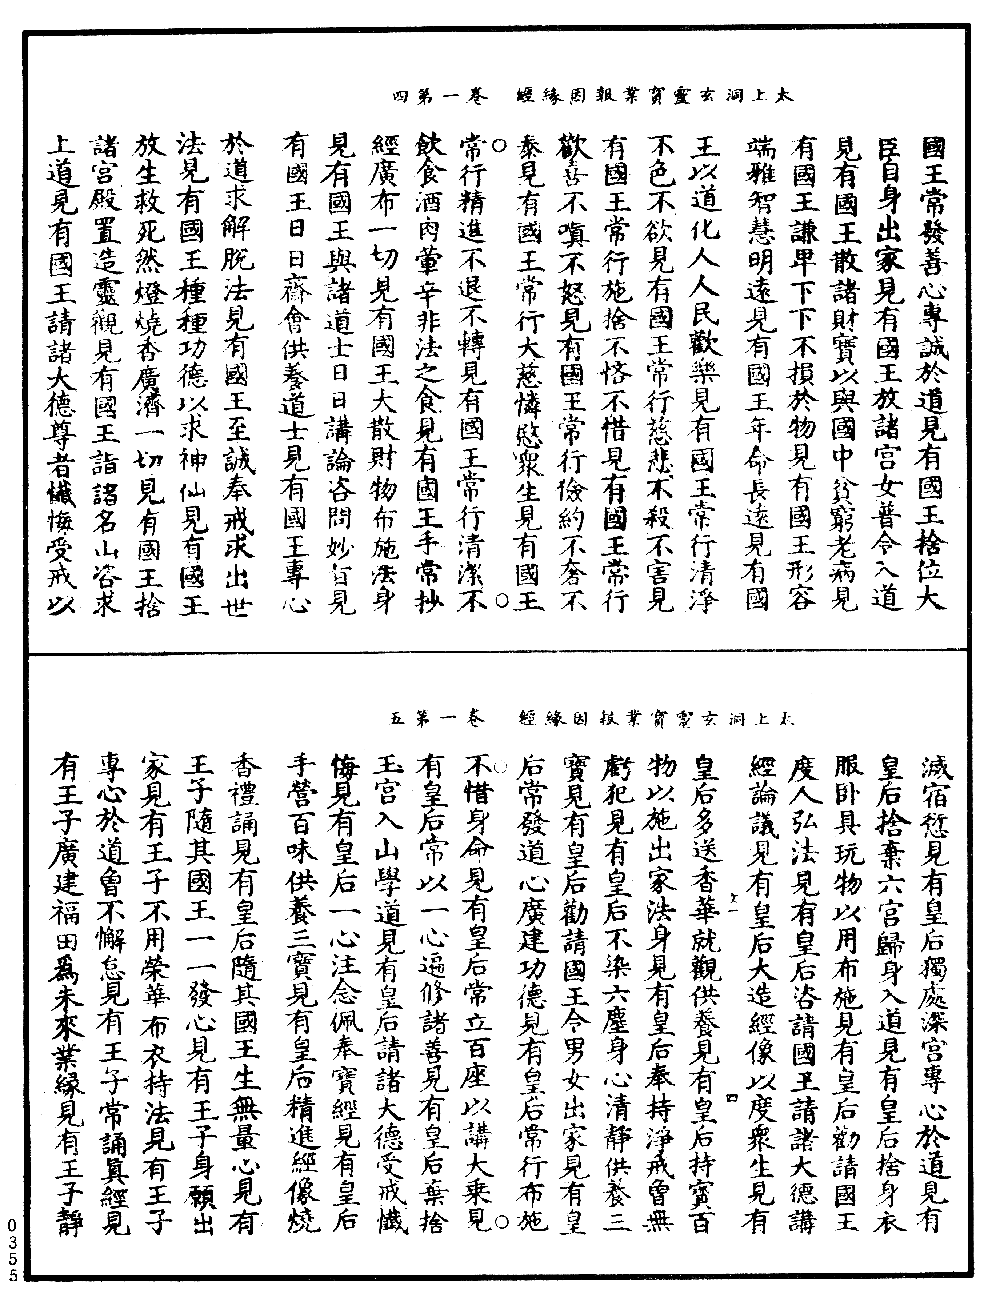 太上洞玄靈寶業報因緣經　卷一第四
國王常發善心專誠於道見有國王捨位大
臣自身出家見有國王放諸宮女普令入道
見有國王散諸財寶以與國中貧窮老病見
有國王謙卑下下不損於物見有國王形容
端雅智慧明遠見有國王年命長遠見有國
王以道化人人民歡樂見有國王常行清淨
不色不欲見有國王常行慈悲不殺不害見
有國王常行施捨不悋不惜見有國王常行
歡喜不嗔不怒見有國王常行儉約不奢不
泰見有國王常行大慈憐愍衆生見有國王
常行精進不退不轉見有國王常行清潔不
飲食酒肉葷辛非法之食見有國王手常抄
經廣布一切見有國王大散財物布施法身
見有國王與諸道士日日講論咨問妙旨見
有國王日日齋會供養道士見有國王專心
於道求解脫法見有國王至誠奉戒求出世
法見有國王種種功德以求神仙見有國王
放生救死然燈燒香廣濟一切見有國王捨
諸宮殿置造靈觀見有國王詣諸名山咨求
上道見有國王請諸大德尊者懺悔受戒以
太上洞玄靈寶業報因緣經　卷一第五
滅宿愆見有皇后獨處深宮專心於道見有
皇后捨棄六宮歸身入道見有皇后捨身衣
服卧具玩物以用布施見有皇后勸請國王
度人弘法見有皇后咨請國王請諸大德講
經論議見有皇后大造經像以度衆生見有
皇后多送香華就觀供養見有皇后持寶百
物以施出家法身見有皇后奉持淨戒曾無
虧犯見有皇后不染六塵身心清靜供養三
寶見有皇后勸請國王令男女出家見有皇
后常發道心廣建功德見有皇后常行布施
不惜身命見有皇后常立百座以講大乘見
有皇后常以一心遍修諸善見有皇后棄捨
王宮入山學道見有皇后請諸大德受戒懺
悔見有皇后一心注念佩奉寶經見有皇后
手營百味供養三寶見有皇后精進經像燒
香禮誦見有皇后隨其國王生無量心見有
王子隨其國王一一發心見有王子身願出
家見有王子不用榮華布衣持法見有王子
專心於道曾不懈怠見有王子常誦眞經見
有王子廣建福田爲未來業緣見有王子靜
0355